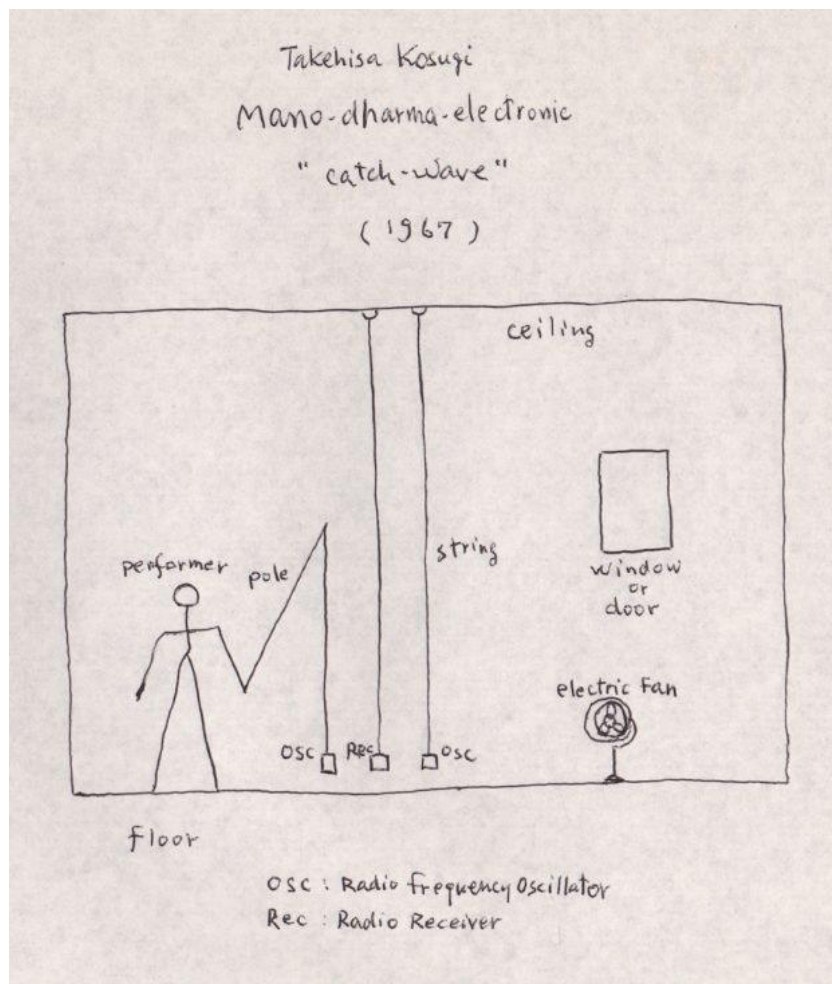 Takehisa Kosugi
Mano-dharma-electronic
"catch-wave"
(1967)
ceiling
performer
pole
string
window
or
door
electric Fan
OSC
Rec
OSC
floor
OSC : Radio frequency Oscillator
Rec : Radio Receiver